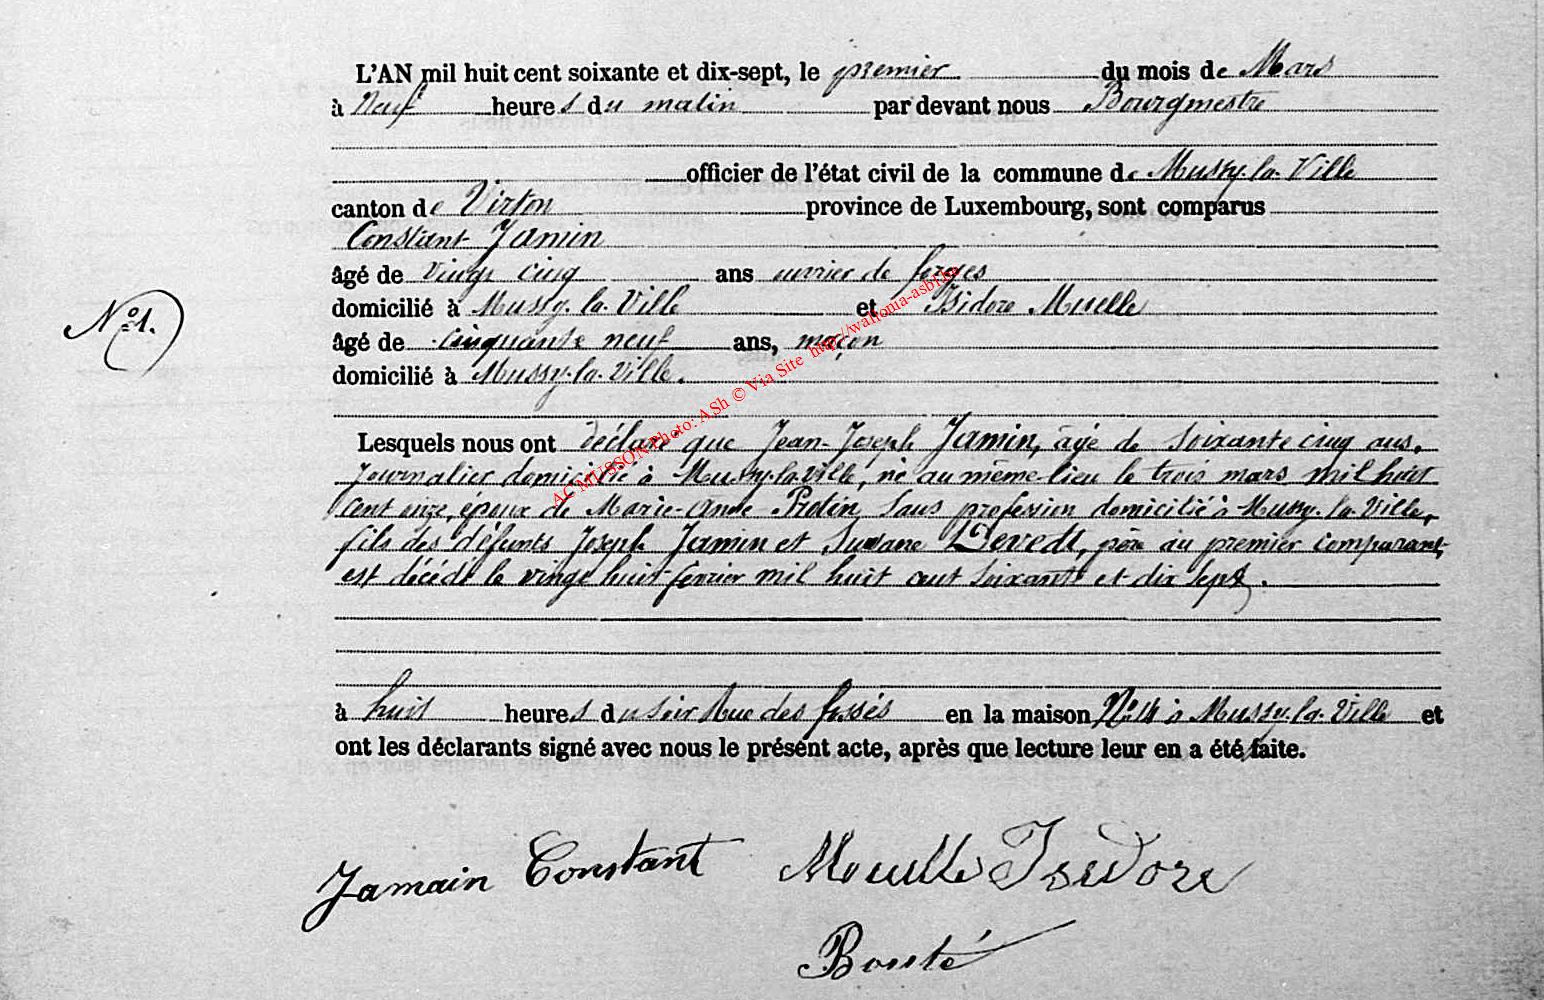 L'AN mil huit cent soixante et dix-sept, le premier du mois de Mars
à Neuf heures du matin par devant nous Bourgmestre
officier de l'état civil de la commune de Mussy-la-Ville
canton de Virton province de Luxembourg, sont comparus
Constant Jamin
âgé de vingt cinq ans ouvrier de forges
domicilié à Mussy-la-Ville et Isidore
âgé de cinquante neuf ans, maçon
domicilié à Mussy-la-Ville.
N° 1.
Lesquels nous ont déclaré que Jean-Joseph Jamin, âgé de soixante cinq ans,
journalier domicilié à Mussy-la-Ville, né au même lieu le trois mars mil huit
cent onze, époux de Marie-Anne sans profession domicilié à Mussy-la-Ville,
fils des défunts Joseph Jamin et Suzane père au premier comparant,
est décédé le vingt huit fevrier mil huit cent soixante et dix sept.
à huit heures du soir Rue des fossés en la maison N° 14 à Mussy-la-Ville et
ont les déclarants signé avec nous le présent acte, après que lecture leur en a été faite.
Jamain Constant Isidore
Bouté
AC MUSSON Photo: ASh © Via Site http://wallonia-asbl.be